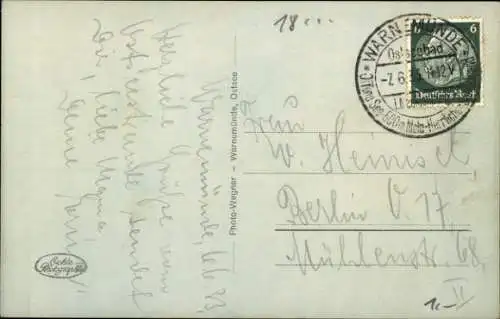 18...
Warnemünde, 6.6.33.
Herzliche Grüße vom
Ostseestrande sendet
Dir, liebe Mama
Deine
Echte Photographie
Photo-Wegner – Warnemünde, Ostsee
WARNEMÜNDE
Ostseebad
-7.6.
6
Deutsches Reich
Frau
W. Heinisch
Berlin O. 17,
Mühlenstr. 68.
II
1.-